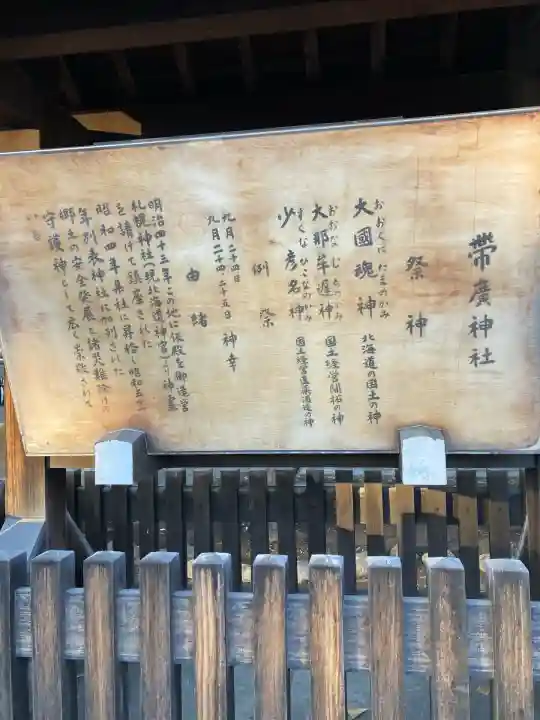 帶廣神社
祭神
おおくにたまのかみ
大國魂神 北海道の国土の神
おおなむちのかみ
大那牟遅神 国土経営開拓の神
すくなひこなのかみ
少彦名神 国土経営医薬酒造の神
例祭
九月二十四日
九月二十四、二十五日 神幸
由緒
明治四十三年この地に仮殿を御造営
札幌神社(現北海道神宮)より神霊
を請けて鎮座された
昭和四年県社に昇格し昭和五十
年別表神社に加列された
郷土の安全発展と諸災難除けの
守護神として広く崇敬されて